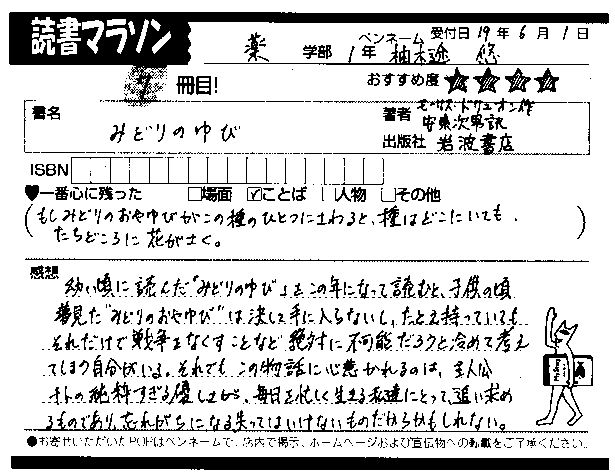 読書マラソン
薬 学部 1年 ペンネーム 柚木逵 悠 受付日 19年6月1日
7 冊目! おすすめ度 ★★★★
書名 みどりのゆび
著者 モーリス・ドリュオン作
安東次男訳
出版社 岩波書店
ISBN
♥一番心に残った □場面 ☑ことば □人物 □その他
(もしみどりのおやゆびがこの種のひとつにさわると、種はどこにいても、
たちどころに花がさく。)
感想
幼い頃に読んだ“みどりのゆび”をこの年になって読むと、子供の頃
夢見た“みどりのおやゆび”は決して手に入らないし、たとえ持っていても
それだけで戦争をなくすことなど絶対に不可能だろうと冷めて考え
てしまう自分がいる。それでもこの物語に心惹かれるのは、主人公
チトの純粋すぎる優しさが、毎日を忙しく生きる私達にとって、追い求め
るものであり、忘れがちになる失ってはいけないものだからかもしれない。
●お寄せいただいたPOPはペンネームで、店内で掲示、ホームページおよび宣伝物への転載をご了承ください。